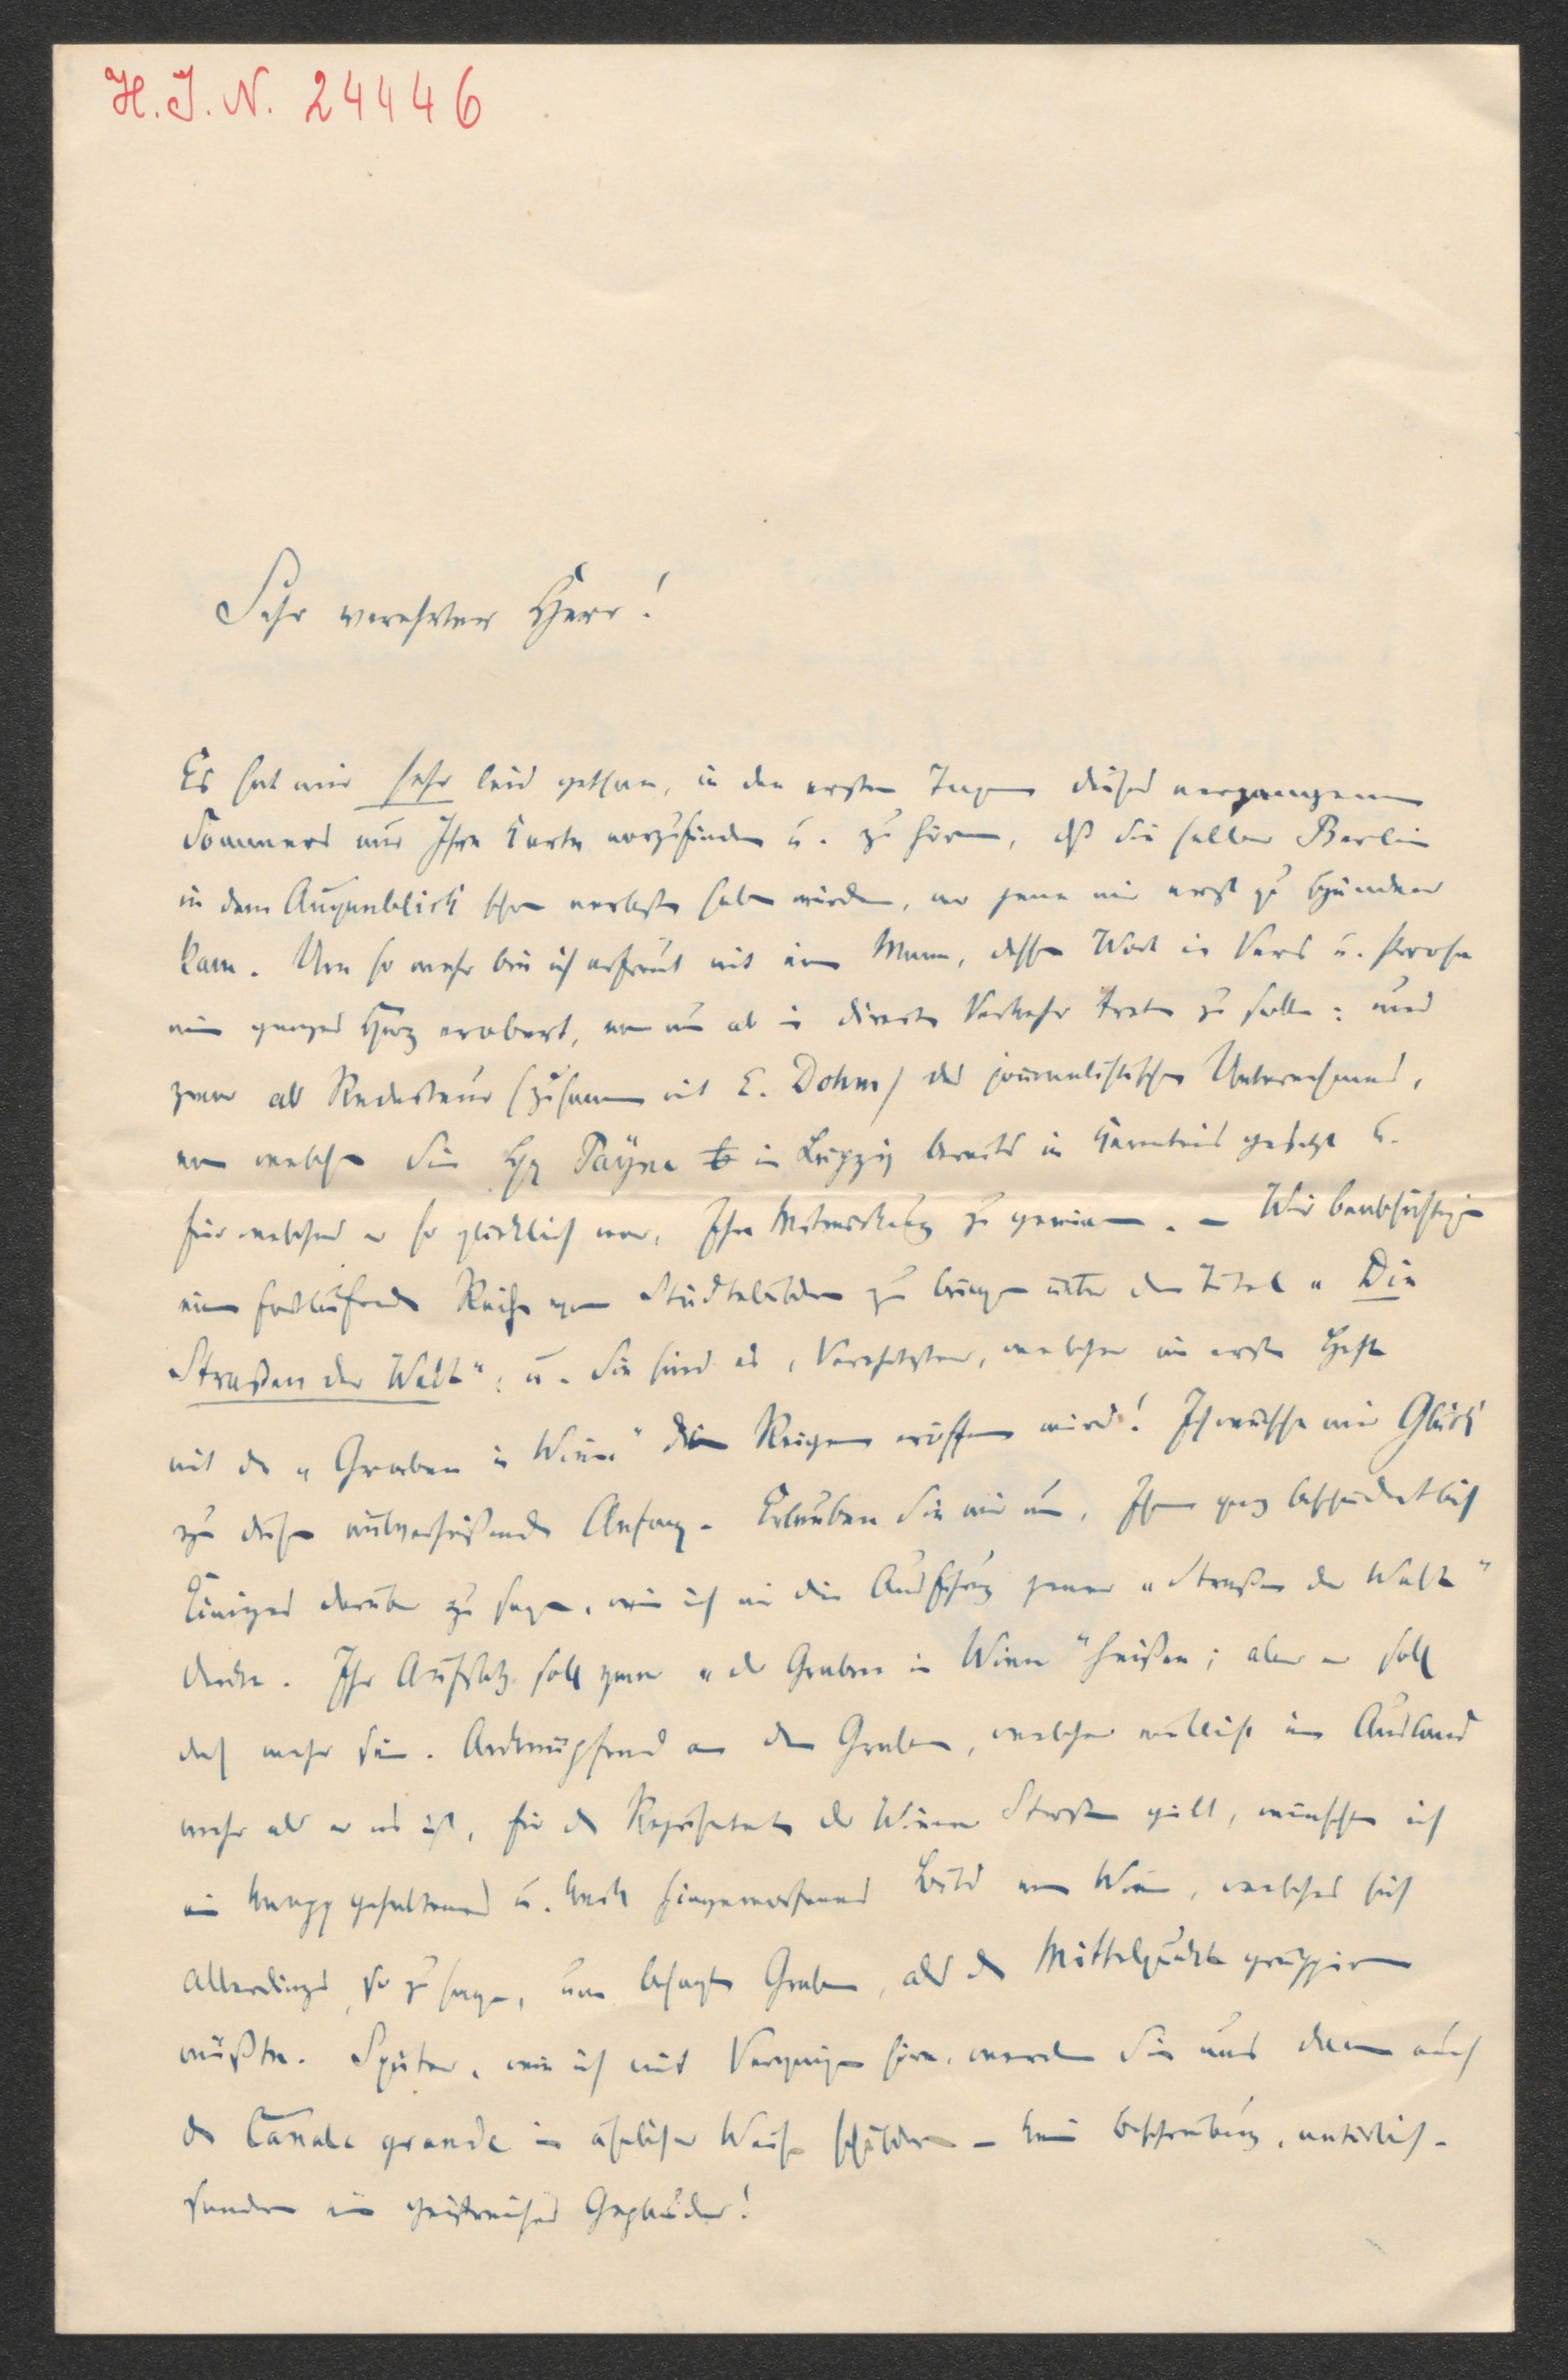 H. I. N. 24446
Sehr verehrter Herr!
Es hat mir sehr leid gethan, in den ersten Tagen dieses vergangenen
Sommers nur Ihre Karte vorzufinden u. zu hören, daß Sie selber Berlin
in dem Augenblick schon verlassen haben würden, wo jene mir erst zu Händen
kam. Um so mehr bin ich erfreut mit einem Mann, dessen Wort in Vers u. Prosa
mein ganzes Herz erobert, von nun ab in directen Verkehr treten zu sollen: und
zwar als Redacteur (zusammen mit E. Dohm) des journalistischen Unternehmens,
von welchem Sie Hr Payne in Leipzig bereits in Kenntnis gesetzt u.
für welches er so glücklich war, Ihre Mitwirkung zu gewinnen. – Wir beabsichtigen
eine fortlaufende Reihe von Städtebildern zu bringen unter dem Titel „Die
Straßen der Welt“; u. Sie sind es, Verehrtester, welcher im ersten Heft
mit dem „Graben in Wien“ den Reigen eröffnen wird! Ich wünsche mir Glück
zu diesem vielverheißenden Anfang. Erlauben Sie mir nun, Ihnen ganz bescheidentlich
Einiges darüber zu sagen, wie ich mir die Ausführung jener „Straßen der Welt“
denke. Ihr Aufsatz soll zwar „der Graben in Wien“ heißen; aber er soll
doch mehr sein. Anknüpfend an den Graben, welcher vielleicht im Ausland
mehr als er es ist, für den Repräsentanten der Wiener Straßen gilt, wünschte ich
ein knapp gehaltenes u. keck hingeworfenes Bild von Wien, welches sich
allerdings, so zu sagen, um besagten Graben, als den Mittelpunkt gruppiren
müßte. Später, wie ich mit Vergnügen höre, werden Sie uns dann auch
den Canale grande in ähnlicher Weise schildern – keine Beschreibung, natürlich –
sondern ein geistreiches Geplauder!